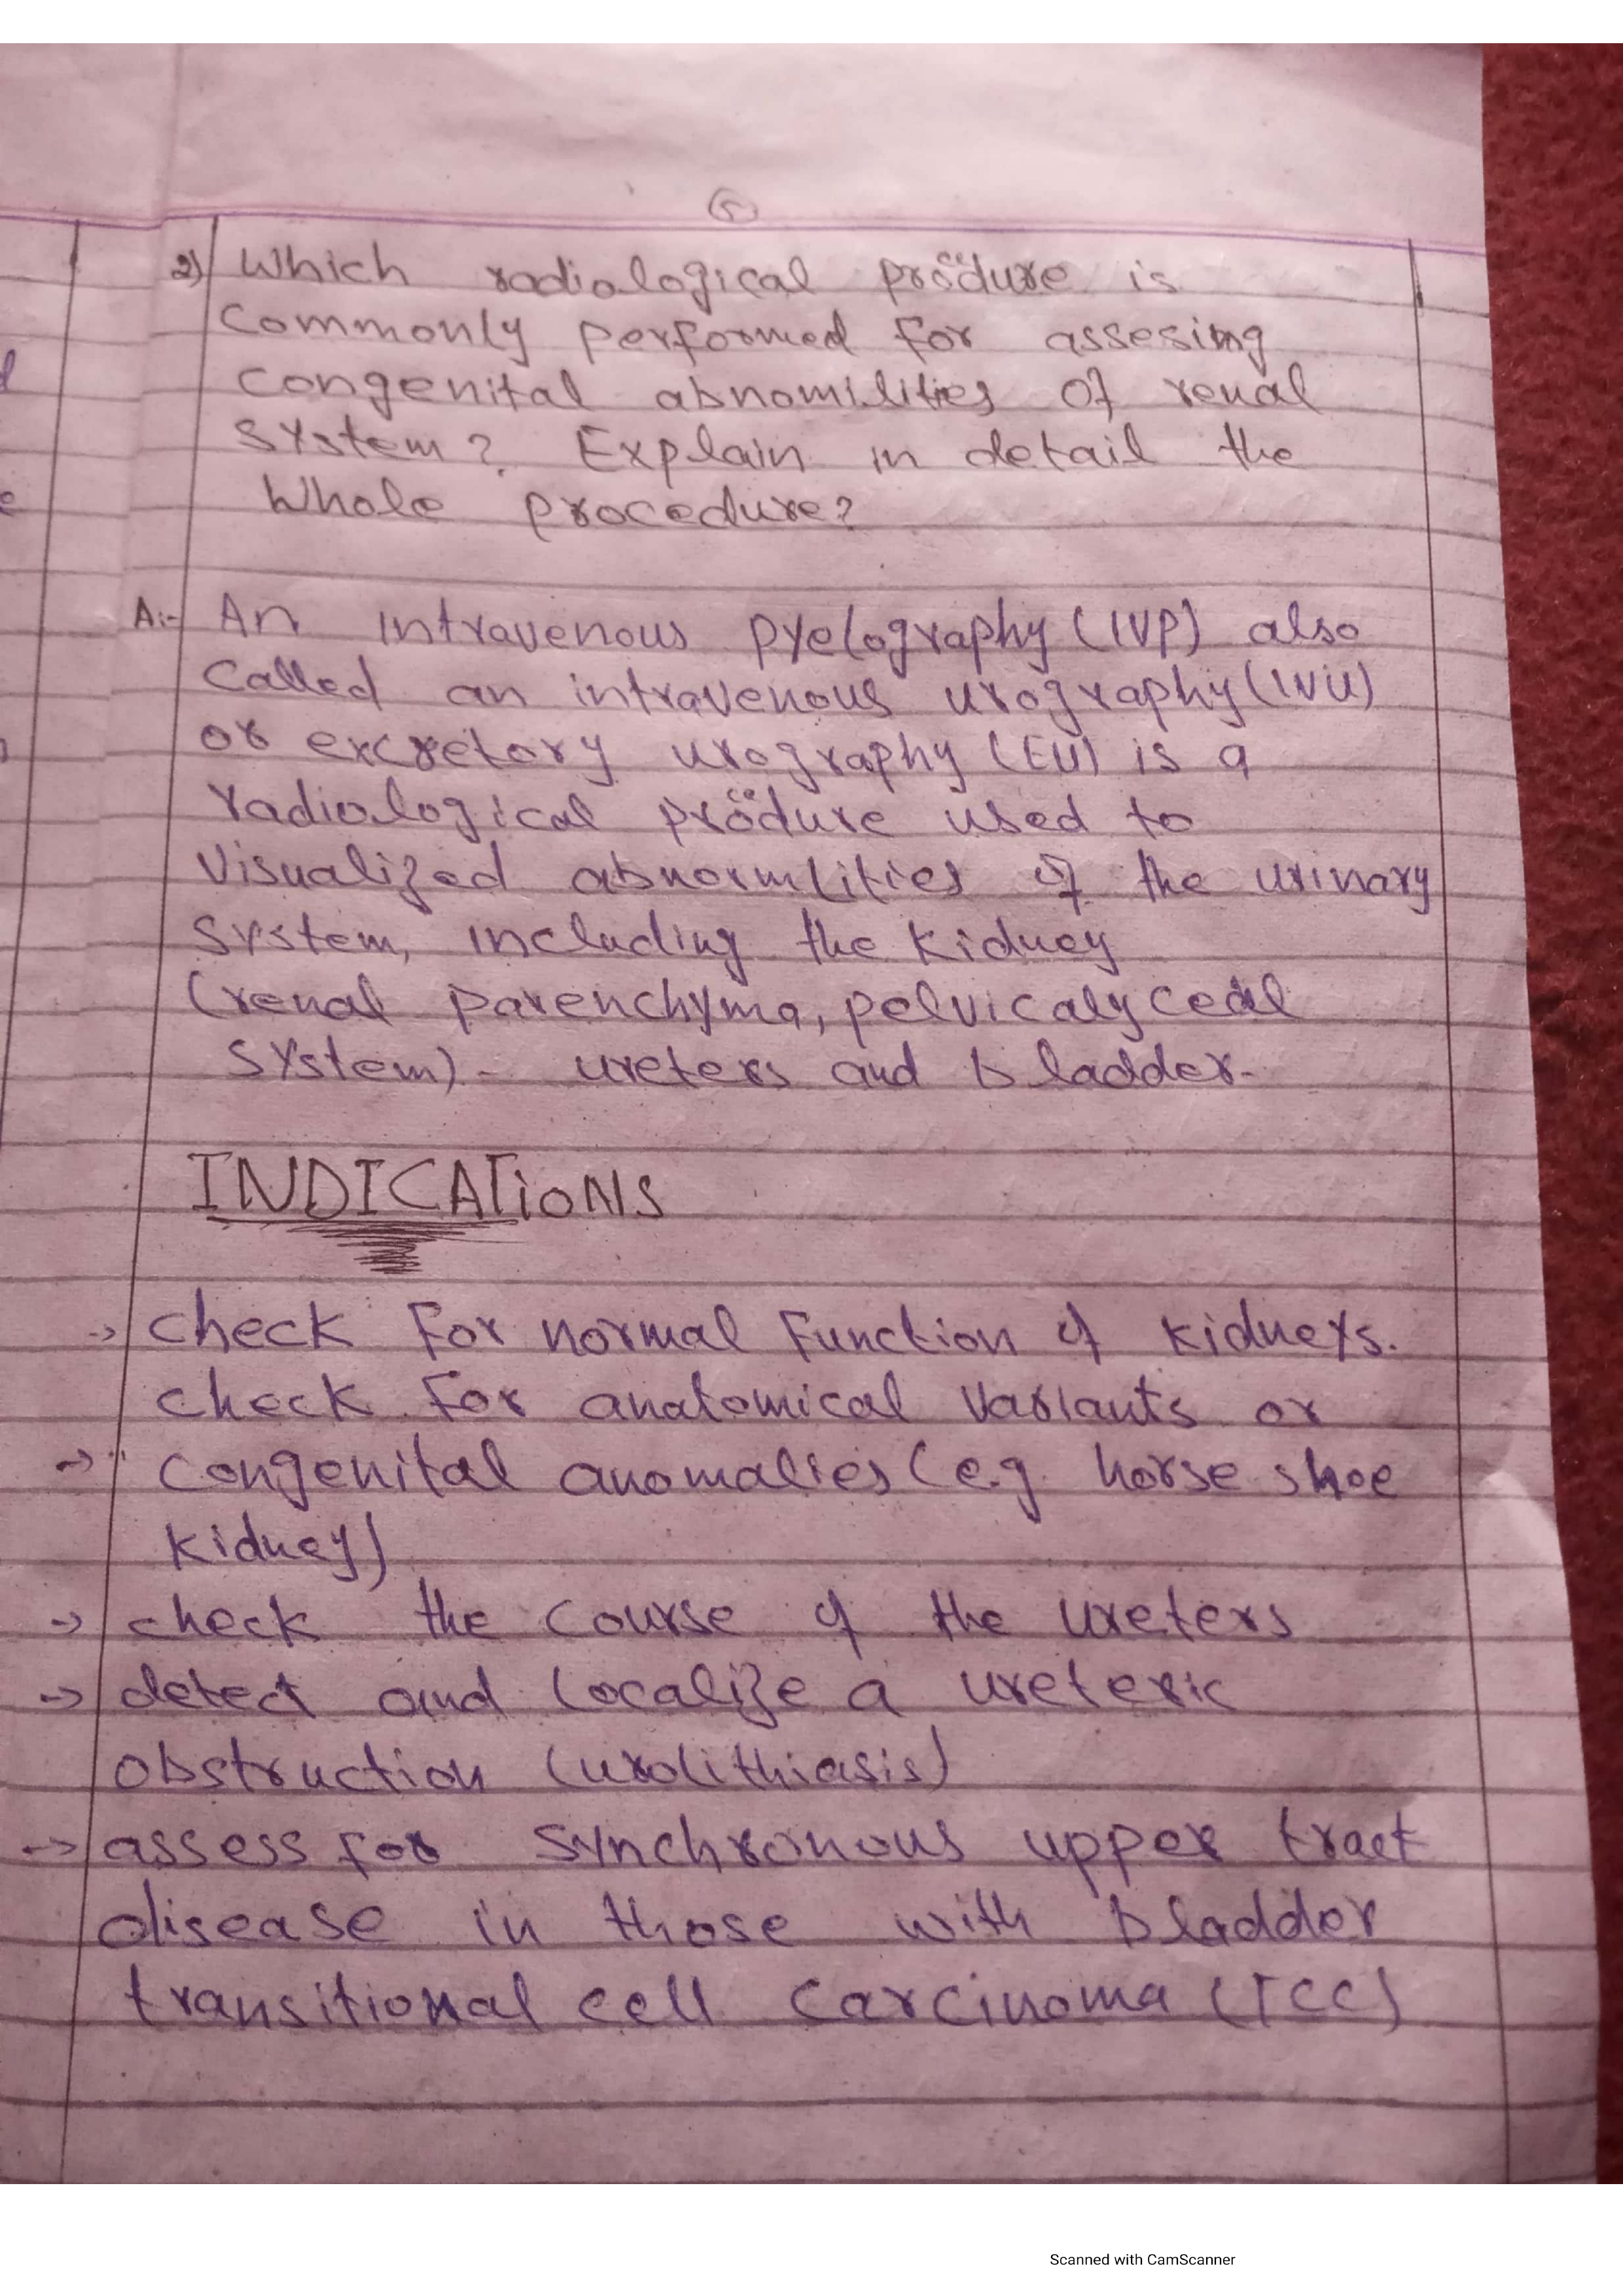 5
2) Which radiological pröcëdure is
Commonly performed for assesimg
Congenital abnomilities of renal
System? Explain in detail the
Whole procedure?
A:- An intravenous pyelography (IVP) also
Called an intravenous urography (IVU)
or excretory urography (EU) is a
radiological prödure used to
Visualized abnormlities of the urinary
System, including the Kidney
(renal parenchyma, pelvicalyceal
System) - ureters and bladder-
INDICATiONS
-> check for normal Function of kidneys.
check for anatomical variants or
-> Congenital anomalies (e.g. horse shoe
kidney)
-> check the course of the ureters
-> detect and localize a ureteric
obstruction (urolithiasis)
-> assess for synchronous upper tract
disease in those with bladder
transitional cell carcinoma (TCC)
Scanned with CamScanner